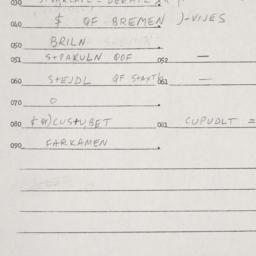 030
$ QF BREMEN )-VIJES
040
BRILN
050
S+PAKULN QOF
051 052 —
S+EJDL QF S+AXT/
060 061 —
0
070
080 $ )CUS+UBET 081 CUPUDLT =
090 FARKAMEN